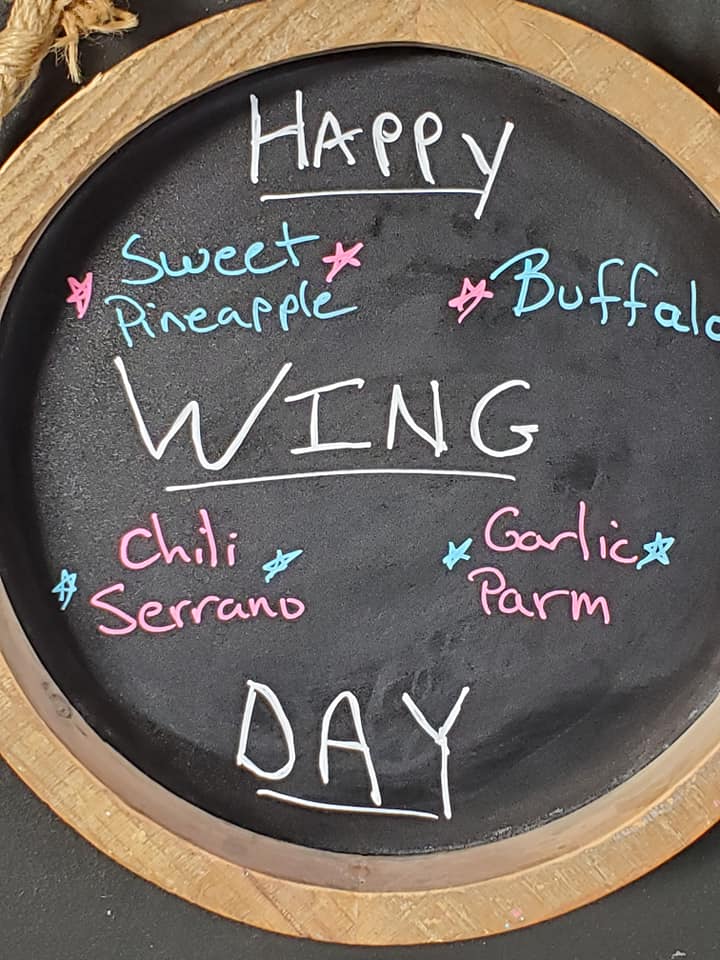 HAPPY
Sweet
Pineapple
Buffalo
WING
Chili
Serrano
Garlic
Parm
DAY